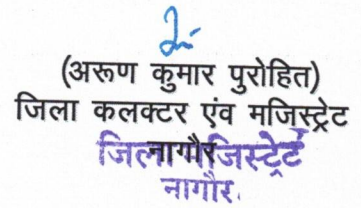 (अरूण कुमार पुरोहित)
जिला कलक्टर एंव मजिस्ट्रेट
नागौर
जिला मजिस्ट्रेट
नागौर